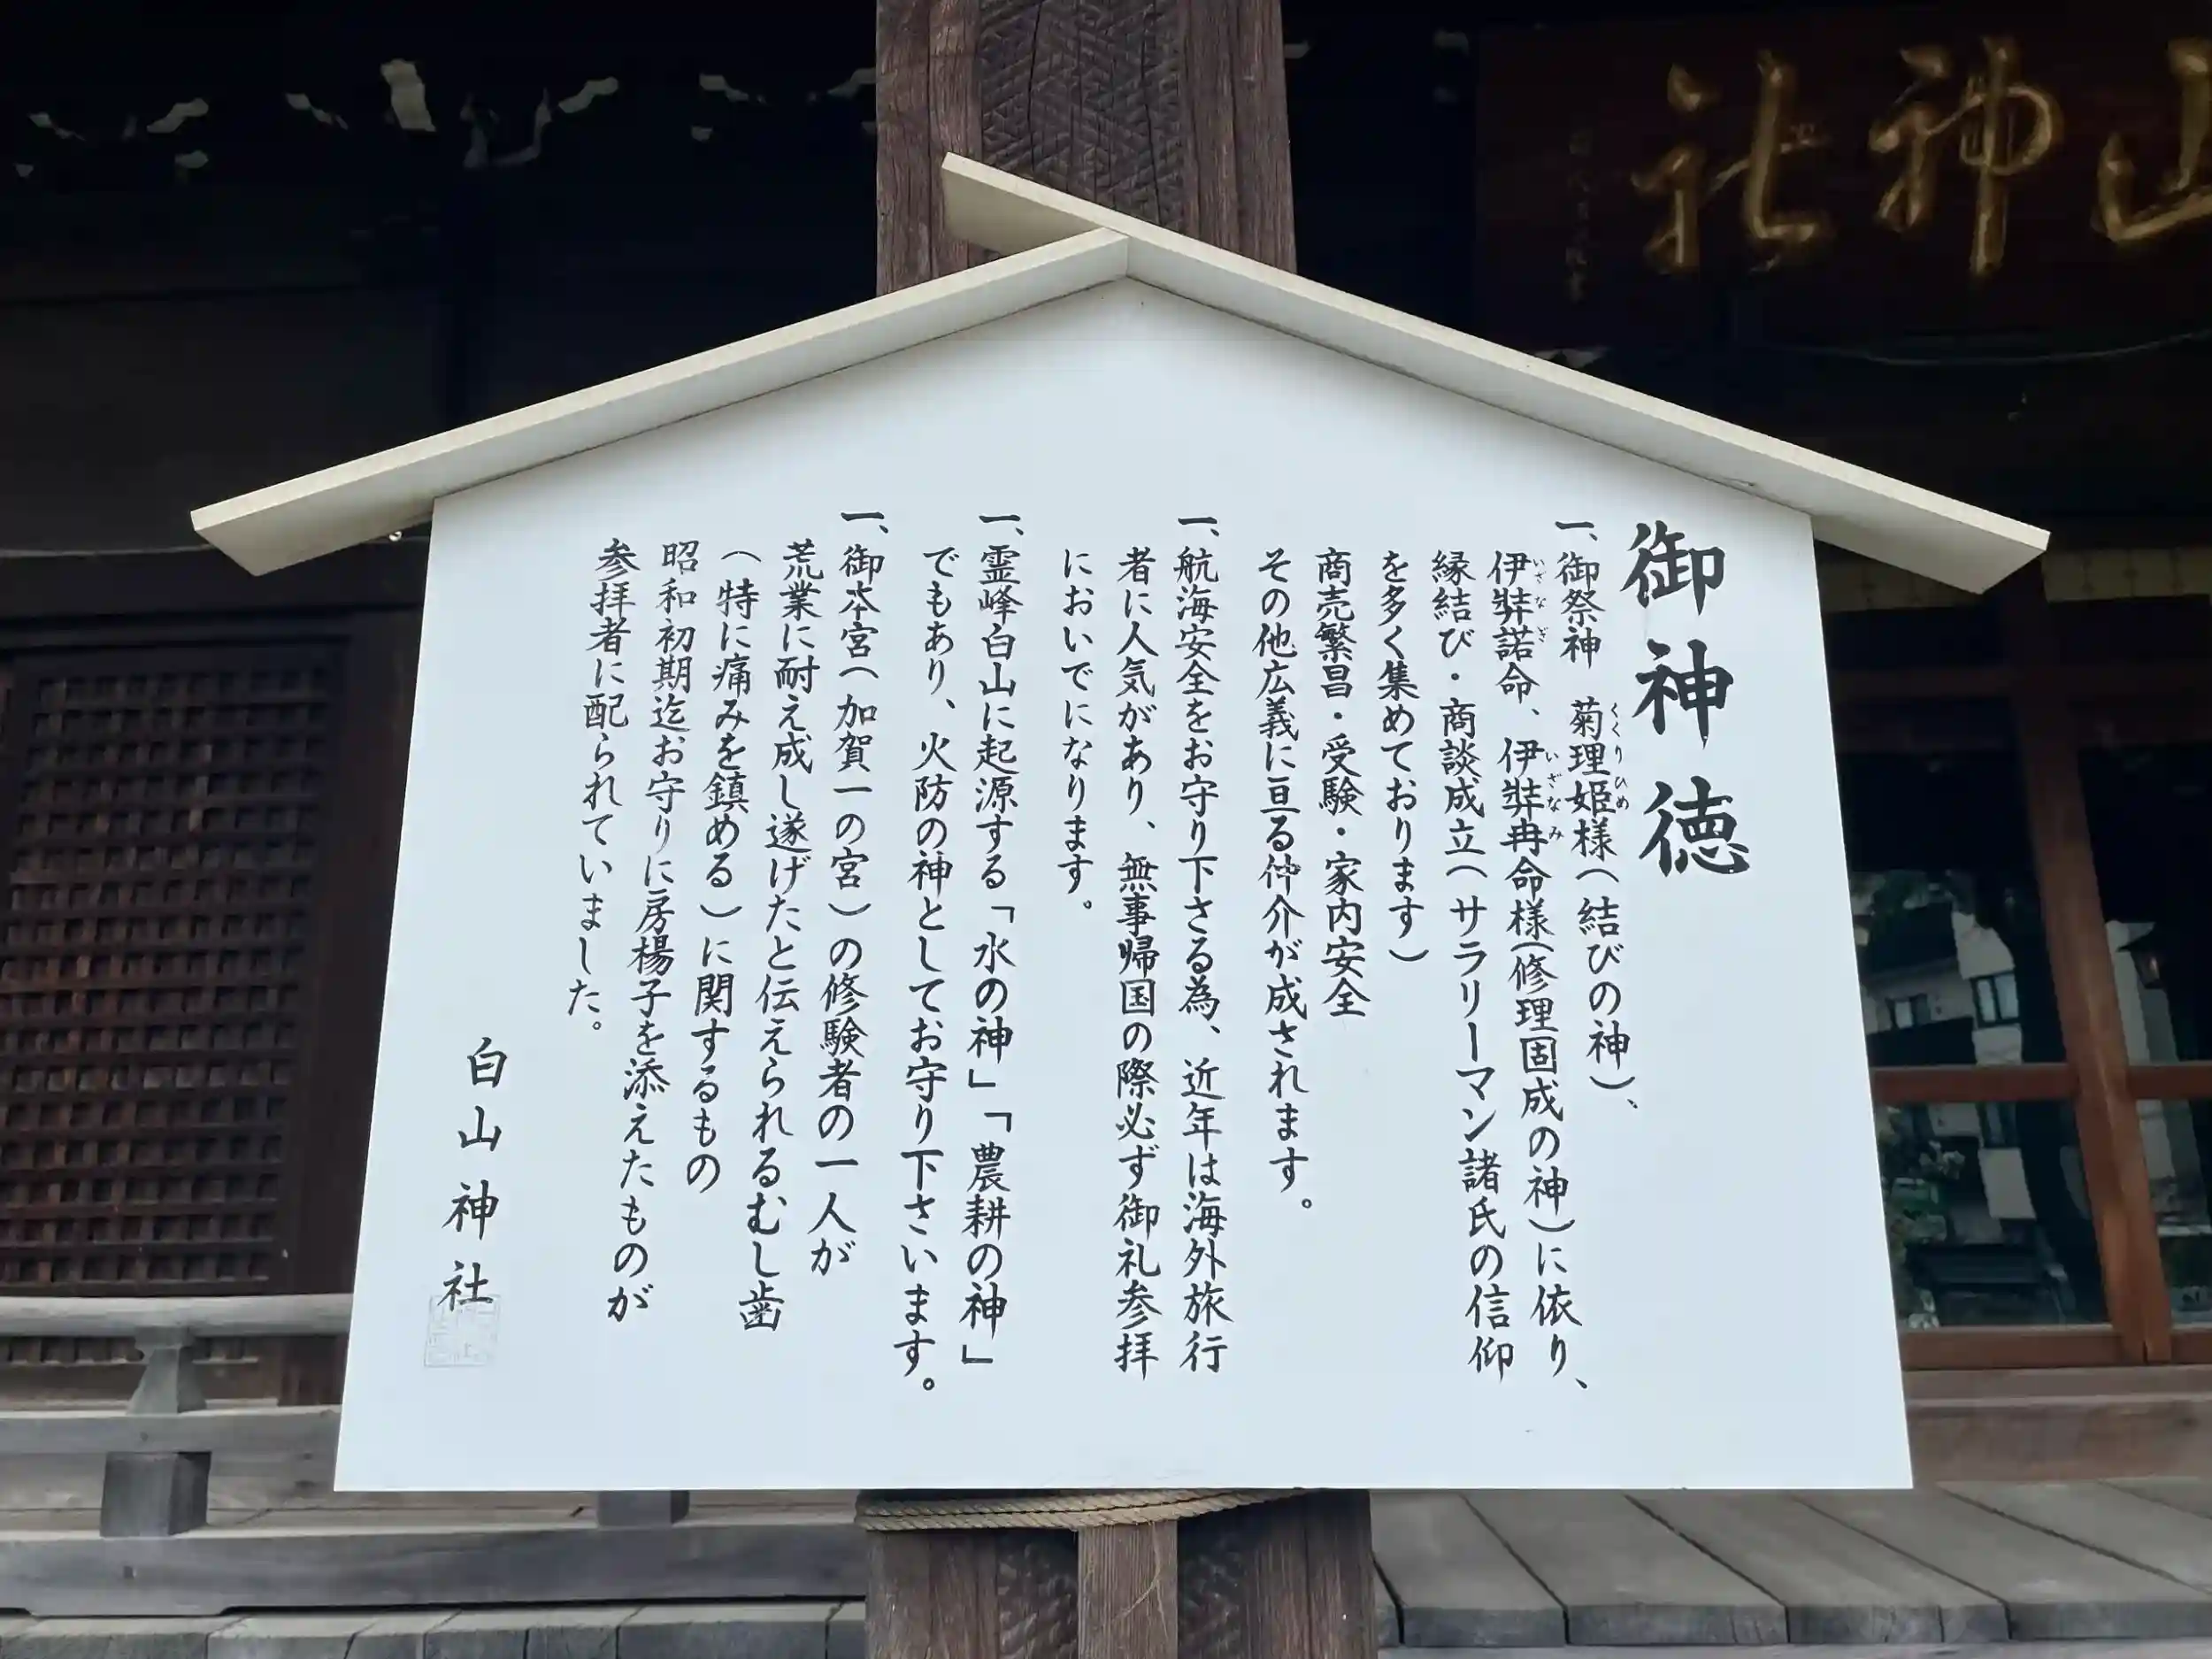 御神徳
一、御祭神　菊理姫様（結びの神）、
くくりひめ
伊弉諾命、伊弉冉命様（修理固成の神）に依り、
いざなぎ
いざなみ
縁結び・商談成立（サラリーマン諸氏の信仰
を多く集めております）
商売繁昌・受験・家内安全
その他広義に亘る仲介が成されます。
一、航海安全をお守り下さる為、近年は海外旅行
者に人気があり、無事帰国の際必ず御礼参拝
においでになります。
一、霊峰白山に起源する「水の神」「農耕の神」
でもあり、火防の神としてお守り下さいます。
一、御本宮（加賀一の宮）の修験者の一人が
荒業に耐え成し遂げたと伝えられるむし歯
（特に痛みを鎮める）に関するもの
昭和初期迄お守りに房楊子を添えたものが
参拝者に配られていました。
白山神社
山神社